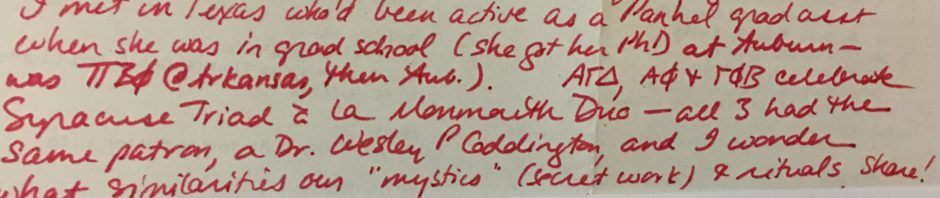 I met in Texas who'd been active as a Panhel grad asst
when she was in grad school (she got her PhD at Auburn—
was ΠΒΦ @ Arkansas, then Aub.). ΑΓΔ, ΑΦ & ΓΦΒ celebrate
Syracuse Triad à la Monmouth Duo — all 3 had the
same patron, a Dr. Wesley P Coddington, and I wonder
what similarities our "mystics" (secret work) & rituals share!